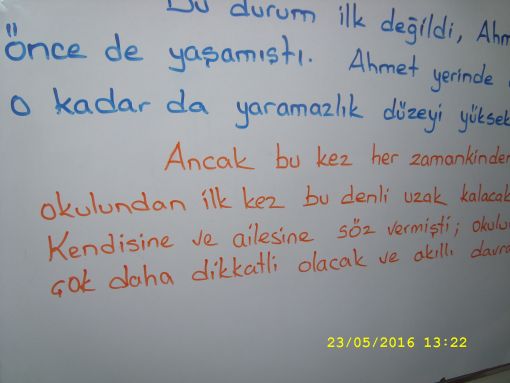 Bu durum ilk değildi, Ahm
önce de yaşamıştı. Ahmet yerinde
o kadar da yaramazlık düzeyi yüksek
Ancak bu kez her zamankinden
okulundan ilk kez bu denli uzak kalacak
Kendisine ve ailesine söz vermişti; okulu
çok daha dikkatli olacak ve akıllı davra
23/05/2016 13:22